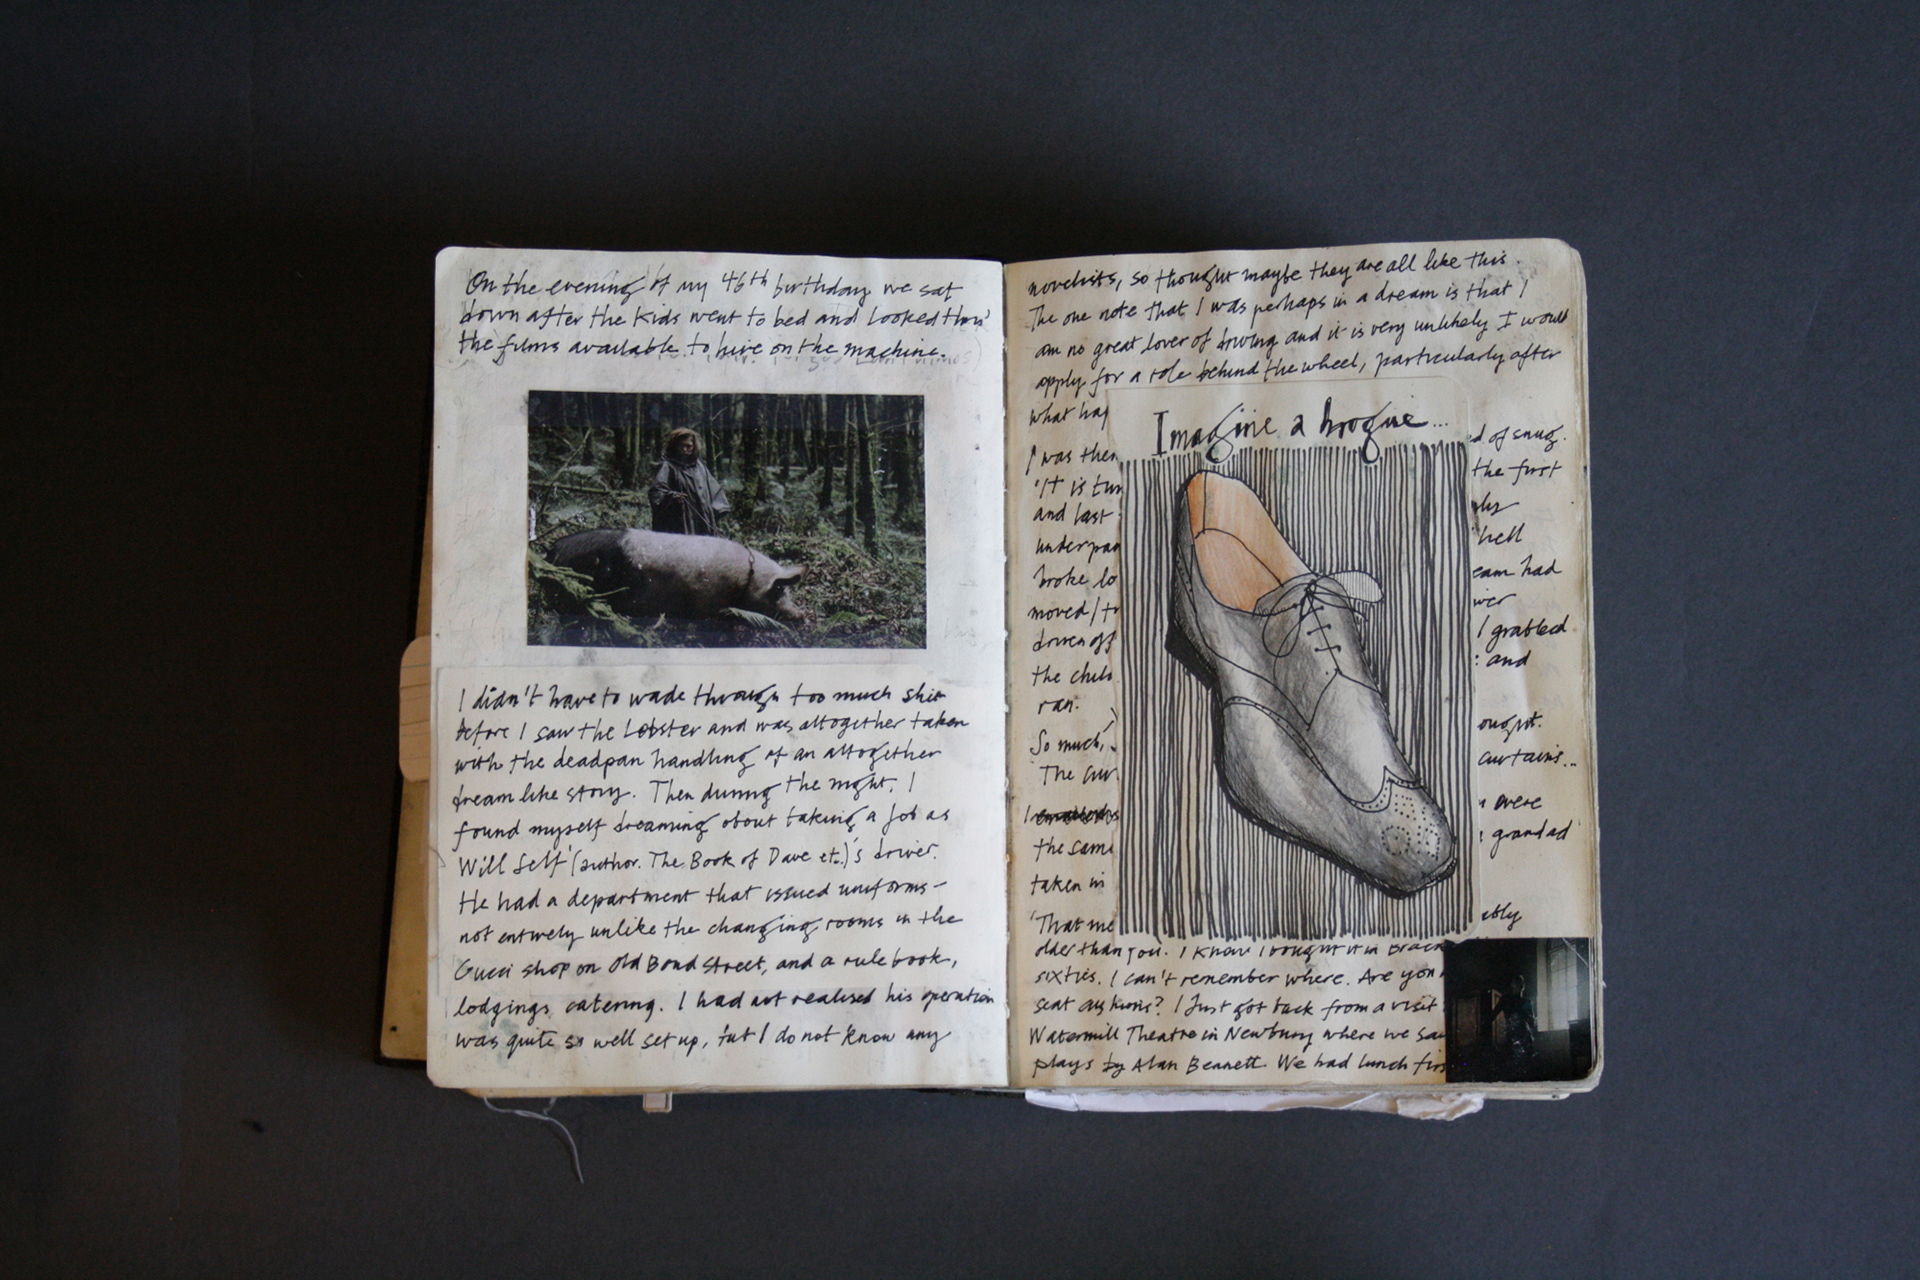 On the evening of my 46th birthday we sat
down after the kids went to bed and looked thro'
the films available to hire on the machine.
I didn't have to wade through too much shit
before I saw the Lobster and was altogether taken
with the deadpan handling of an altogether
dream like story. Then during the night, I
found myself dreaming about taking a job as
Will Self (author. The Book of Dave etc.)'s driver.
He had a department that issued uniforms –
not entirely unlike the changing rooms in the
Gucci shop on Old Bond Street, and a rule book,
lodgings, catering. I had not realised his operation
was quite so well set up, but I do not know any
novelists, so thought maybe they are all like this.
The one note that I was perhaps in a dream is that I
am no great lover of driving and it is very unlikely I would
apply for a role behind the wheel, particularly after
what
Imagine a brogue...
I was of snug.
'It is the first
and last
hell
broke had
moved
driven off I grabbed
the and
ran.
So much,
The curtains...
I were
the same grandad
taken in
'That
older than you. I know I bought it in
sixties. I can't remember where. Are you
seat cushions? I just got back from a visit
Watermill Theatre in Newbury where we
plays by Alan Bennett. We had lunch